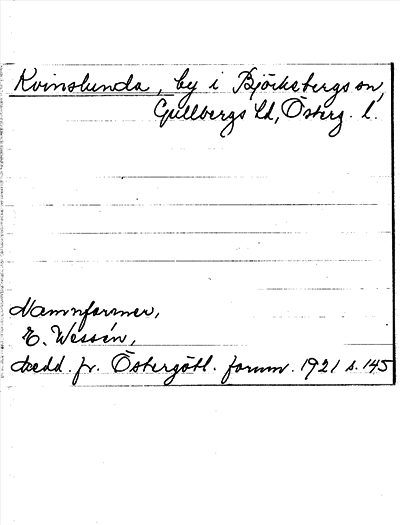 Kvinslunda, by i Björksbergs sn,
Gullbergs hd, Österg. l.
Namnformer,
E. Wessén,
Medd. fr. Östergötl. fornm. 1921 s. 145